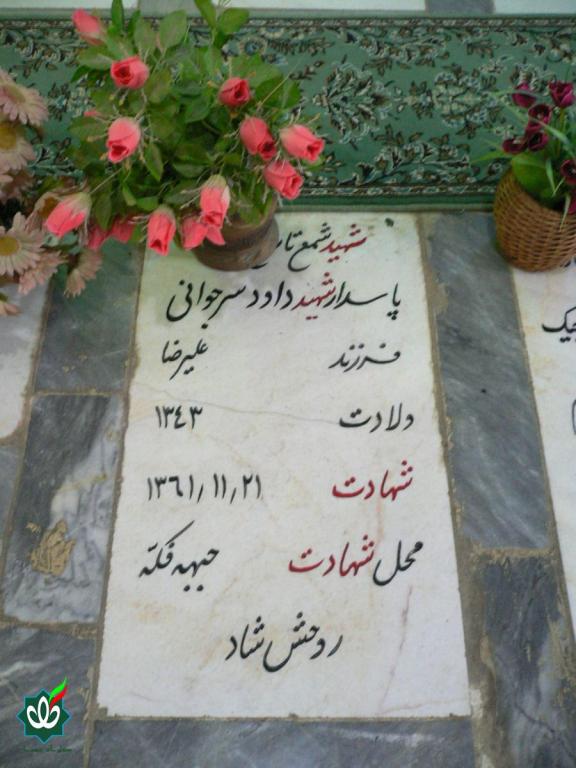 شهید شمع
پاسدار شهید داود سرجوانی
فرزند علیرضا
ولادت ۱۳٤۳
شهادت ۱۳٦۱٫۱۱٫۲۱
محل شهادت جبهه فکّه
روحش شاد